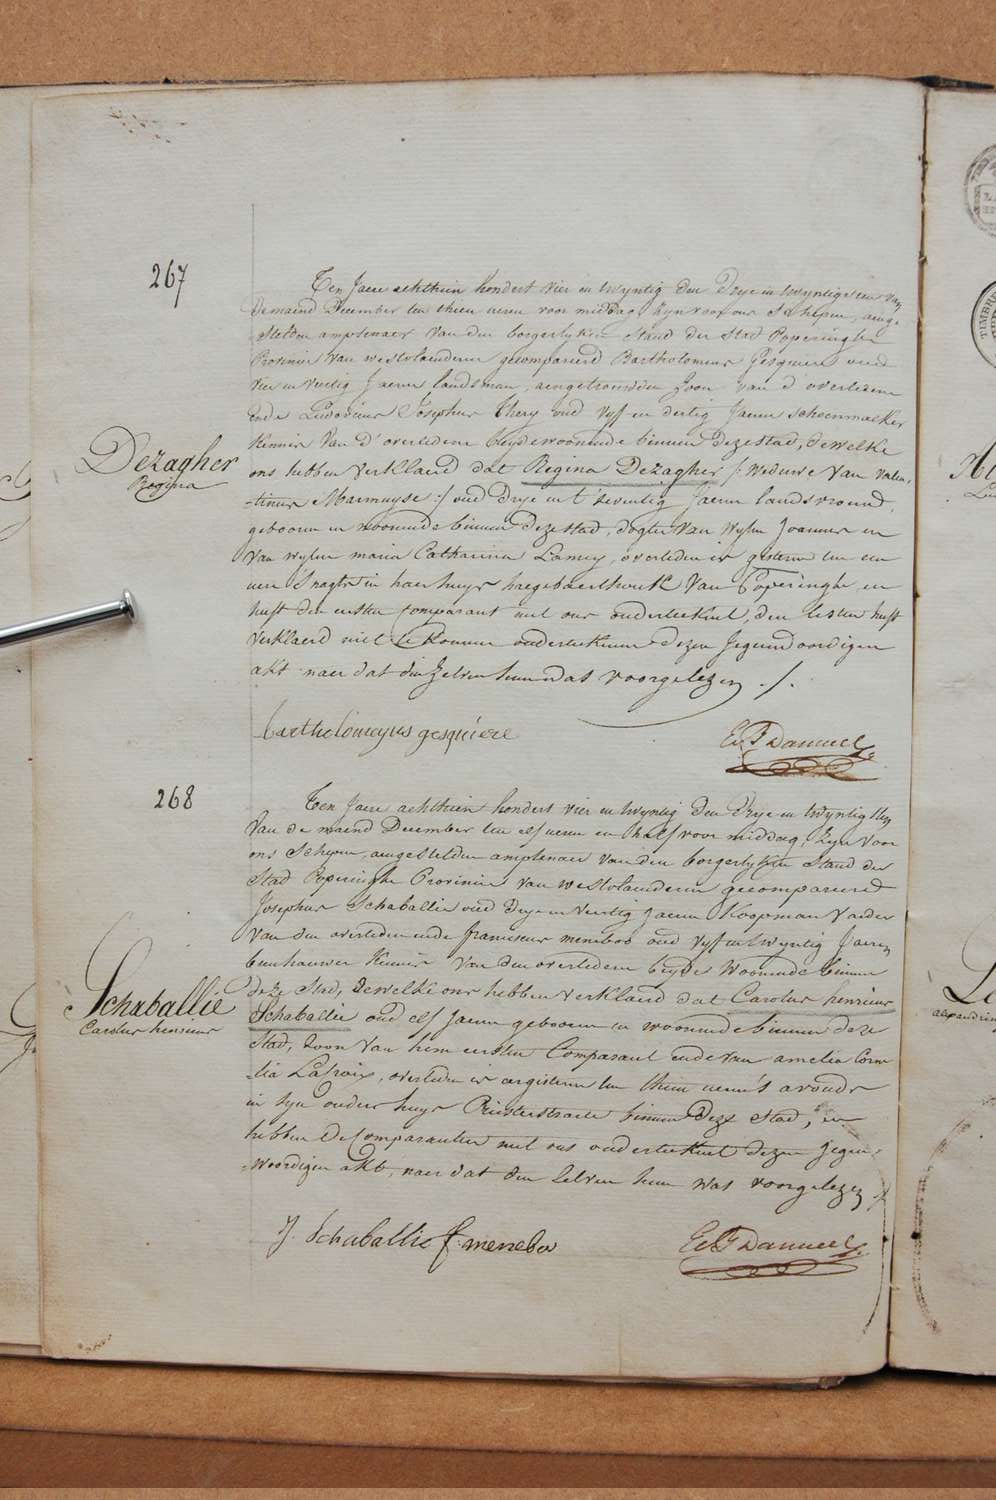 267
Ten Jaere achthien hondert vier en twyntig den drye en twyntigsten van
de maend December ten thien uren voor middag, zyn voor ons Schepen, aenge-
-stelden amptenaer van den borgerlyken Stand der Stad Poperinghe
Provincie van westvlaenderen gecompareerd Bartholomeus Gesquiere oud
vier en veertig Jaeren landsman, aengetrouwden zoon van d'overledene
ende Ludovicus Josephus Thery oud vyf en dertig Jaeren schoenmaeker
kennis van d'overledene beyde woonende binnen deze stad, dewelke
Dezagher
Regina
ons hebben verklaerd dat Regina Dezagher /: weduwe van Valen-
-tinus Marmuyse :/ oud drye en t'seventig Jaeren landsvrouw,
gebooren en woonende binnen deze stad, dogter van wylen Joannes en
van wylen maria Catharina Lamey, overleden is gisteren ten een
uren snagts in haer huys haegebaertswerk van Poperinghe, en
heeft den eersten Comparant met ons onderteekent, den lesten heeft
verklaerd niet te konnen onderteekenen dezen jegenwoordigen
akt naer dat den zelven hun was voorgelezen ./.
bartholomeyus gesquiere
Ed F Danneel
268
Ten Jaere achthien hondert vier en twyntig den drye en twyntigsten
van de maend December ten elf uren en half voor middag, zyn voor
ons Schepen, aengestelden amptenaer van den borgerlyken Stand der
Stad Poperinghe Provincie van westvlaenderen gecompareerd
Josephus Schaballie oud drye en veertig jaeren Koopman vader
van den overledenen ende franciscus meneboo oud vyf en twyntig Jaeren
beenhauwer kennis van den overledenen beyde woonende binnen
Schaballie
Carolus henricus
deze Stad, dewelke ons hebben verklaerd dat Carolus henricus
Schaballie oud elf Jaeren gebooren en woonende binnen deze
stad, zoon van hem eersten Comparant ende van amelia Corne
-lia Lafroix, overleden is eergisteren ten thien uren 's avonds
in zyn ouders huys Priesterstraete binnen deze Stad, en
hebben de Comparanten met ons onderteekent dezen jegen-
-woordigen akt, naer dat den zelven hun was voorgelezen ./.
J. Schaballie f. meneboo
Ed F Danneel